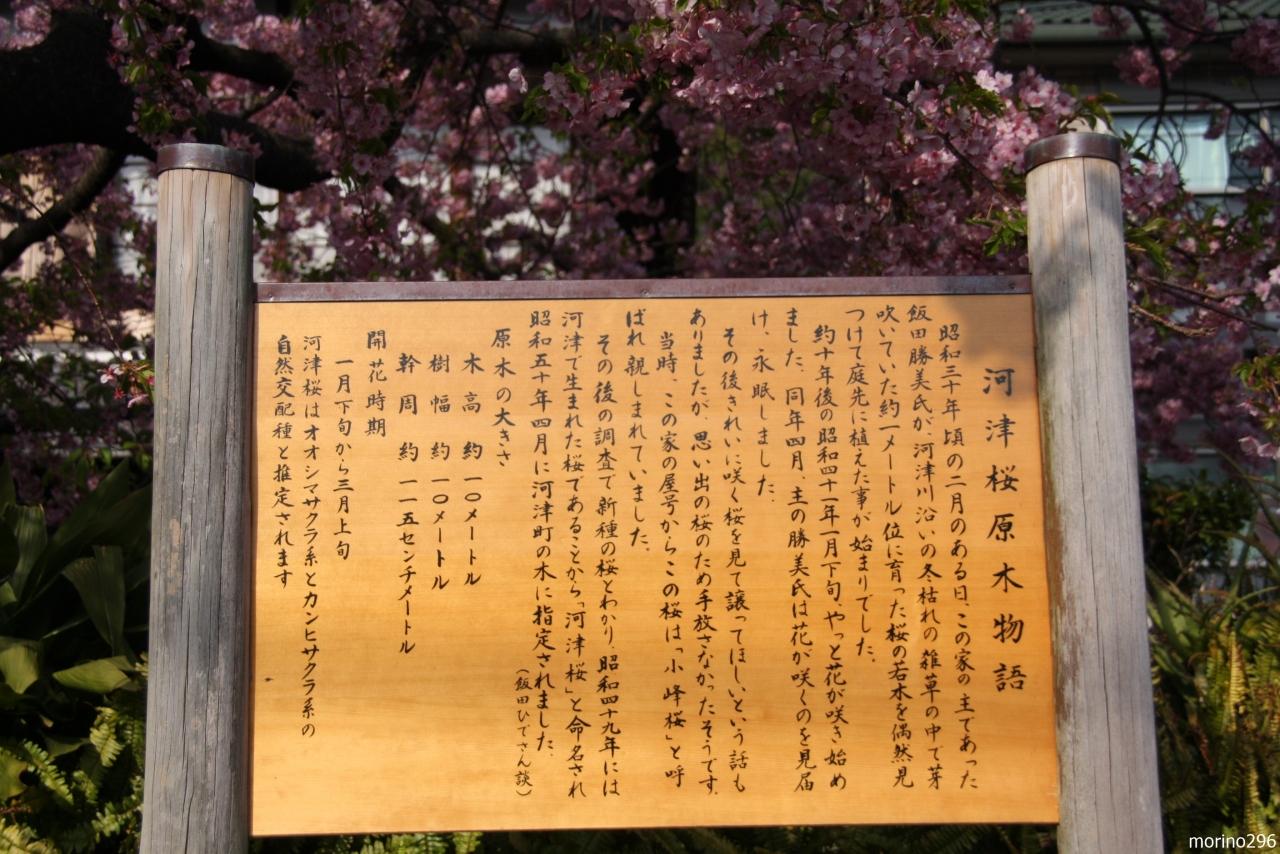 河津桜原木物語
昭和三十年頃の二月のある日、この家の主であった
飯田勝美氏が、河津川沿いの冬枯れの雑草の中で芽
吹いていた約一メートル位に育った桜の若木を偶然見
つけて庭先に植えた事が始まりでした。
約十年後の昭和四十一年一月下旬、やっと花が咲き始め
ました。同年四月、主の勝美氏は花が咲くのを見届
け、永眠しました。
その後きれいに咲く桜を見て譲ってほしいという話も
ありましたが、思い出の桜のため手放さなかったそうです。
当時、この家の屋号からこの桜は、「小峰桜」と呼
ばれ親しまれていました。
その後の調査で新種の桜とわかり、昭和四十九年には
河津で生まれた桜であることから、「河津桜」と命名され
昭和五十年四月に河津町の木に指定されました。
（飯田ひでさん談）
原木の大きさ
木高 約一〇メートル
樹幅 約一〇メートル
幹周 約一一五センチメートル
開花時期
一月下旬から三月上旬
河津桜はオオシマザクラ系とカンヒザクラ系の
自然交配種と推定されます
morino296